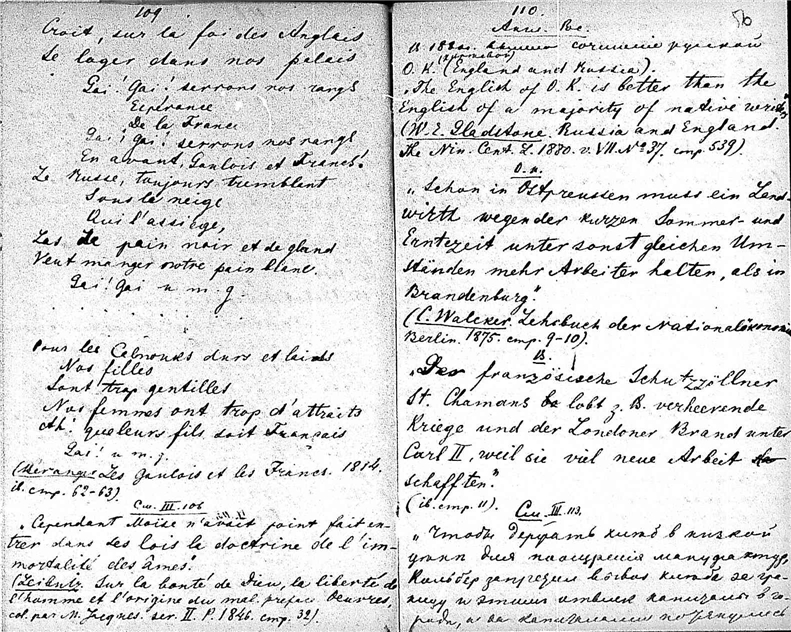 109
Croit, sur la foi des Anglais
Se loger dans nos palais
Gai! Gai! serrons nos rangs
Espérance
De la France
Gai! Gai! serrons nos rangs
En avant, Gaulois et Francs!
Le Russe, toujours tremblant
Sous la neige
Qui l'assiège,
Las de pain noir et de gland
Veut manger notre pain blanc.
Gai! Gai u. m. g
Pour les Calmouks durs et laids
Nos filles
Sont trop gentilles
Nos femmes ont trop d'attraits
Ah! que leurs fils soit Français
Gai! u. m. g.
(Béranger Les Gaulois et les Francs. 1814.
ib. стр. 62-63).
См. III. 106
"Cependant Moïse n'avait point fait en-
trer dans ses lois la doctrine de l'im-
mortalité des âmes.
(Leibnitz. Sur la bonté de Dieu, la liberté de
l'homme et l'origine du mal. préface. Oeuvres,
col. par M. Jacques. ser. II. P. 1846. стр. 32).
110.
50
Англ. Рос.
В 1880. сочинение русской
O. K. (England and Russia).
"The English of O. K. is better than the
English of a majority of native writers"
(W. E. Gladstone. Russia and England.
The Nin. Cent. L. 1880. v. VII. № 37. стр. 539).
"Schon in Ostpreussen muss ein Land-
wirth wegen der kurzen Sommer- und
Erntezeit unter sonst gleichen Um-
ständen mehr Arbeiter halten, als in
Brandenburg".
(C. Walcker. Lehrbuch der Nationalökonomie
Berlin. 1875. стр. 9-10).
B.
"Der französische Schutzzöllner
St. Chamans lobt z. B. verheerende
Kriege und der Londoner Brand unter
Carl II, weil sie viel neue Arbeit
schafften."
(ib. стр. 11).
См. III. 113.
"Чтобы держать хлеб в низкой
цене для поощрения мануфактур,
Кольбер запретил вывоз хлеба за гра-
ницу и этим отвлек капиталы в го-
рода, а за капиталами потянулись